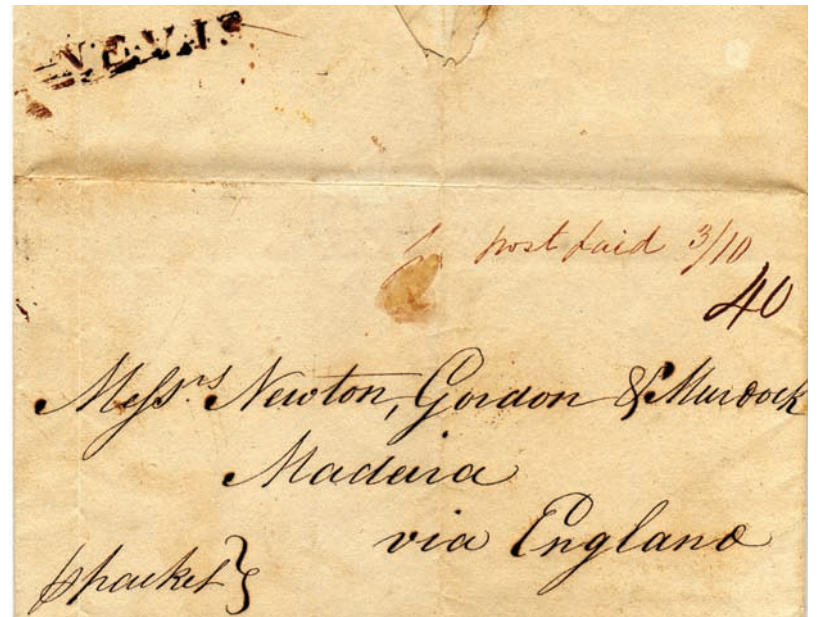 NEVIS
post paid 3/10
40
Messrs Newton, Gordon & Murdock
Madeira
via England
p packet}